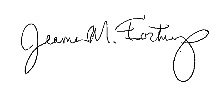 Jeanne M. Fortney